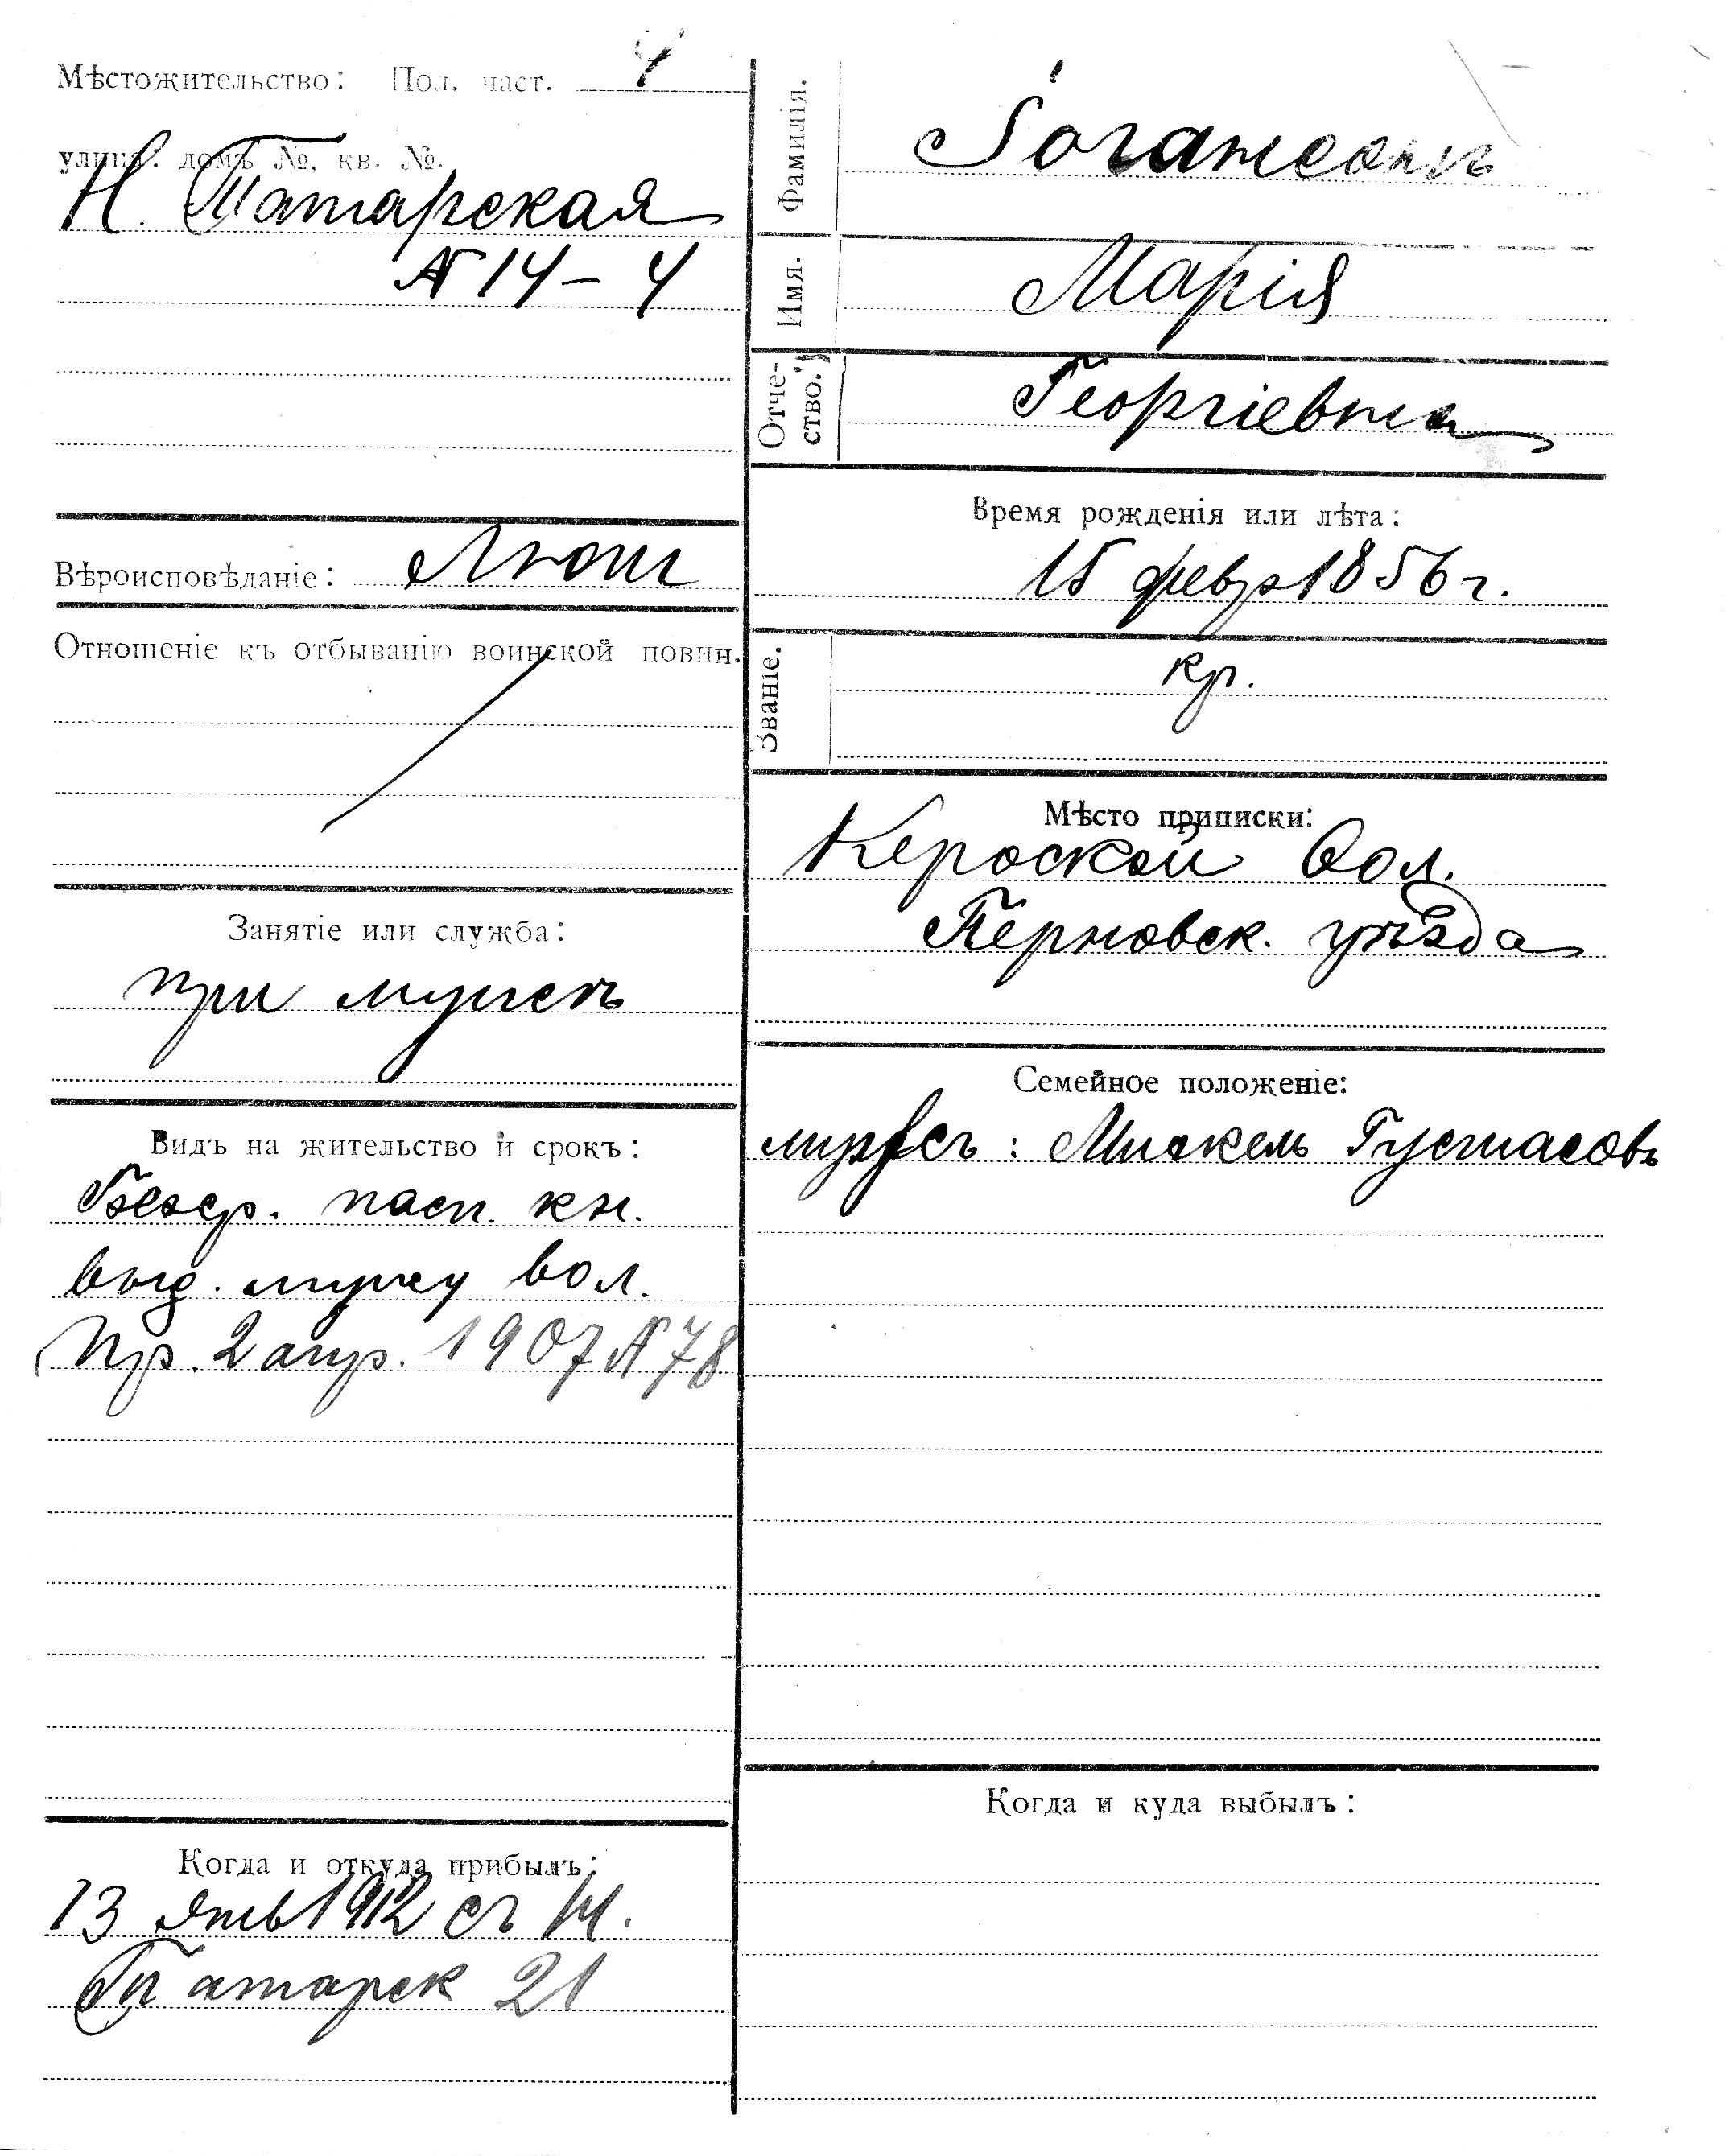 Мѣстожительство: Пол. част. 4
улица: домъ №, кв. №.
Н. Татарская
№ 14 – 4
Вѣроисповѣданіе: Лют
Отношеніе къ отбыванію воинской повин.
Занятіе или служба:
при мужѣ
Видъ на жительство и срокъ:
Безср. пасп. кн.
выд. мужу вол.
пр. 2 апр. 1907 № 78
Когда и откуда прибылъ:
13 янв 1912 съ М.
Татарск 21
Фамилія. Іогансонъ
Имя. Марія
Отче-
ство. Георгіевна
Время рожденія или лѣта:
15 февр 1856 г.
Званіе. кр.
Мѣсто приписки:
Кероской вол.
Перновск. уѣзда
Семейное положеніе:
мужъ: Михкель Густавовъ
Когда и куда выбылъ: